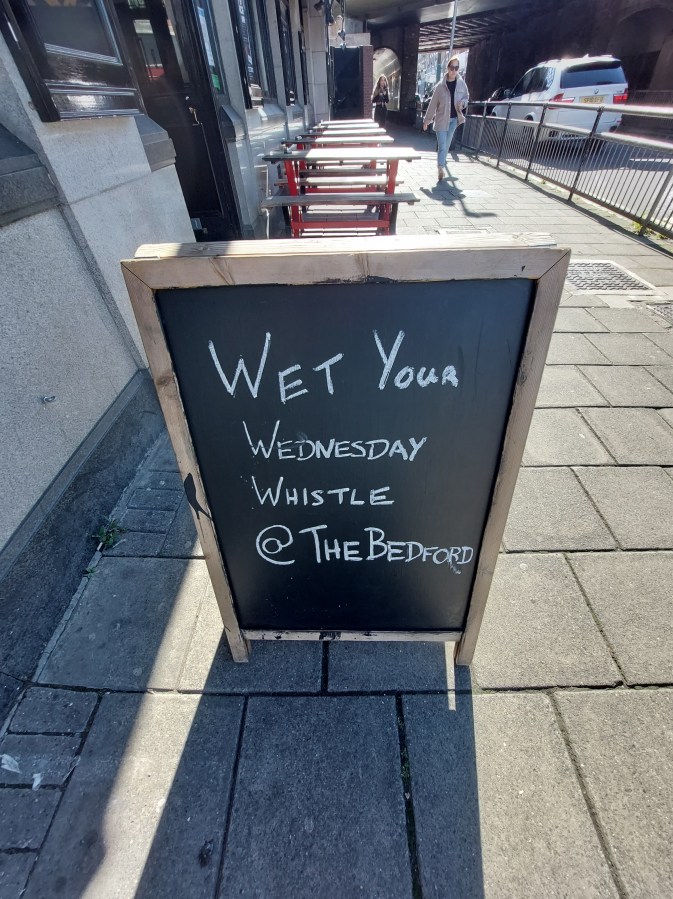 WET YOUR
WEDNESDAY
WHISTLE
@ THE BEDFORD